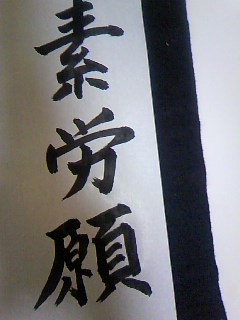 素労願